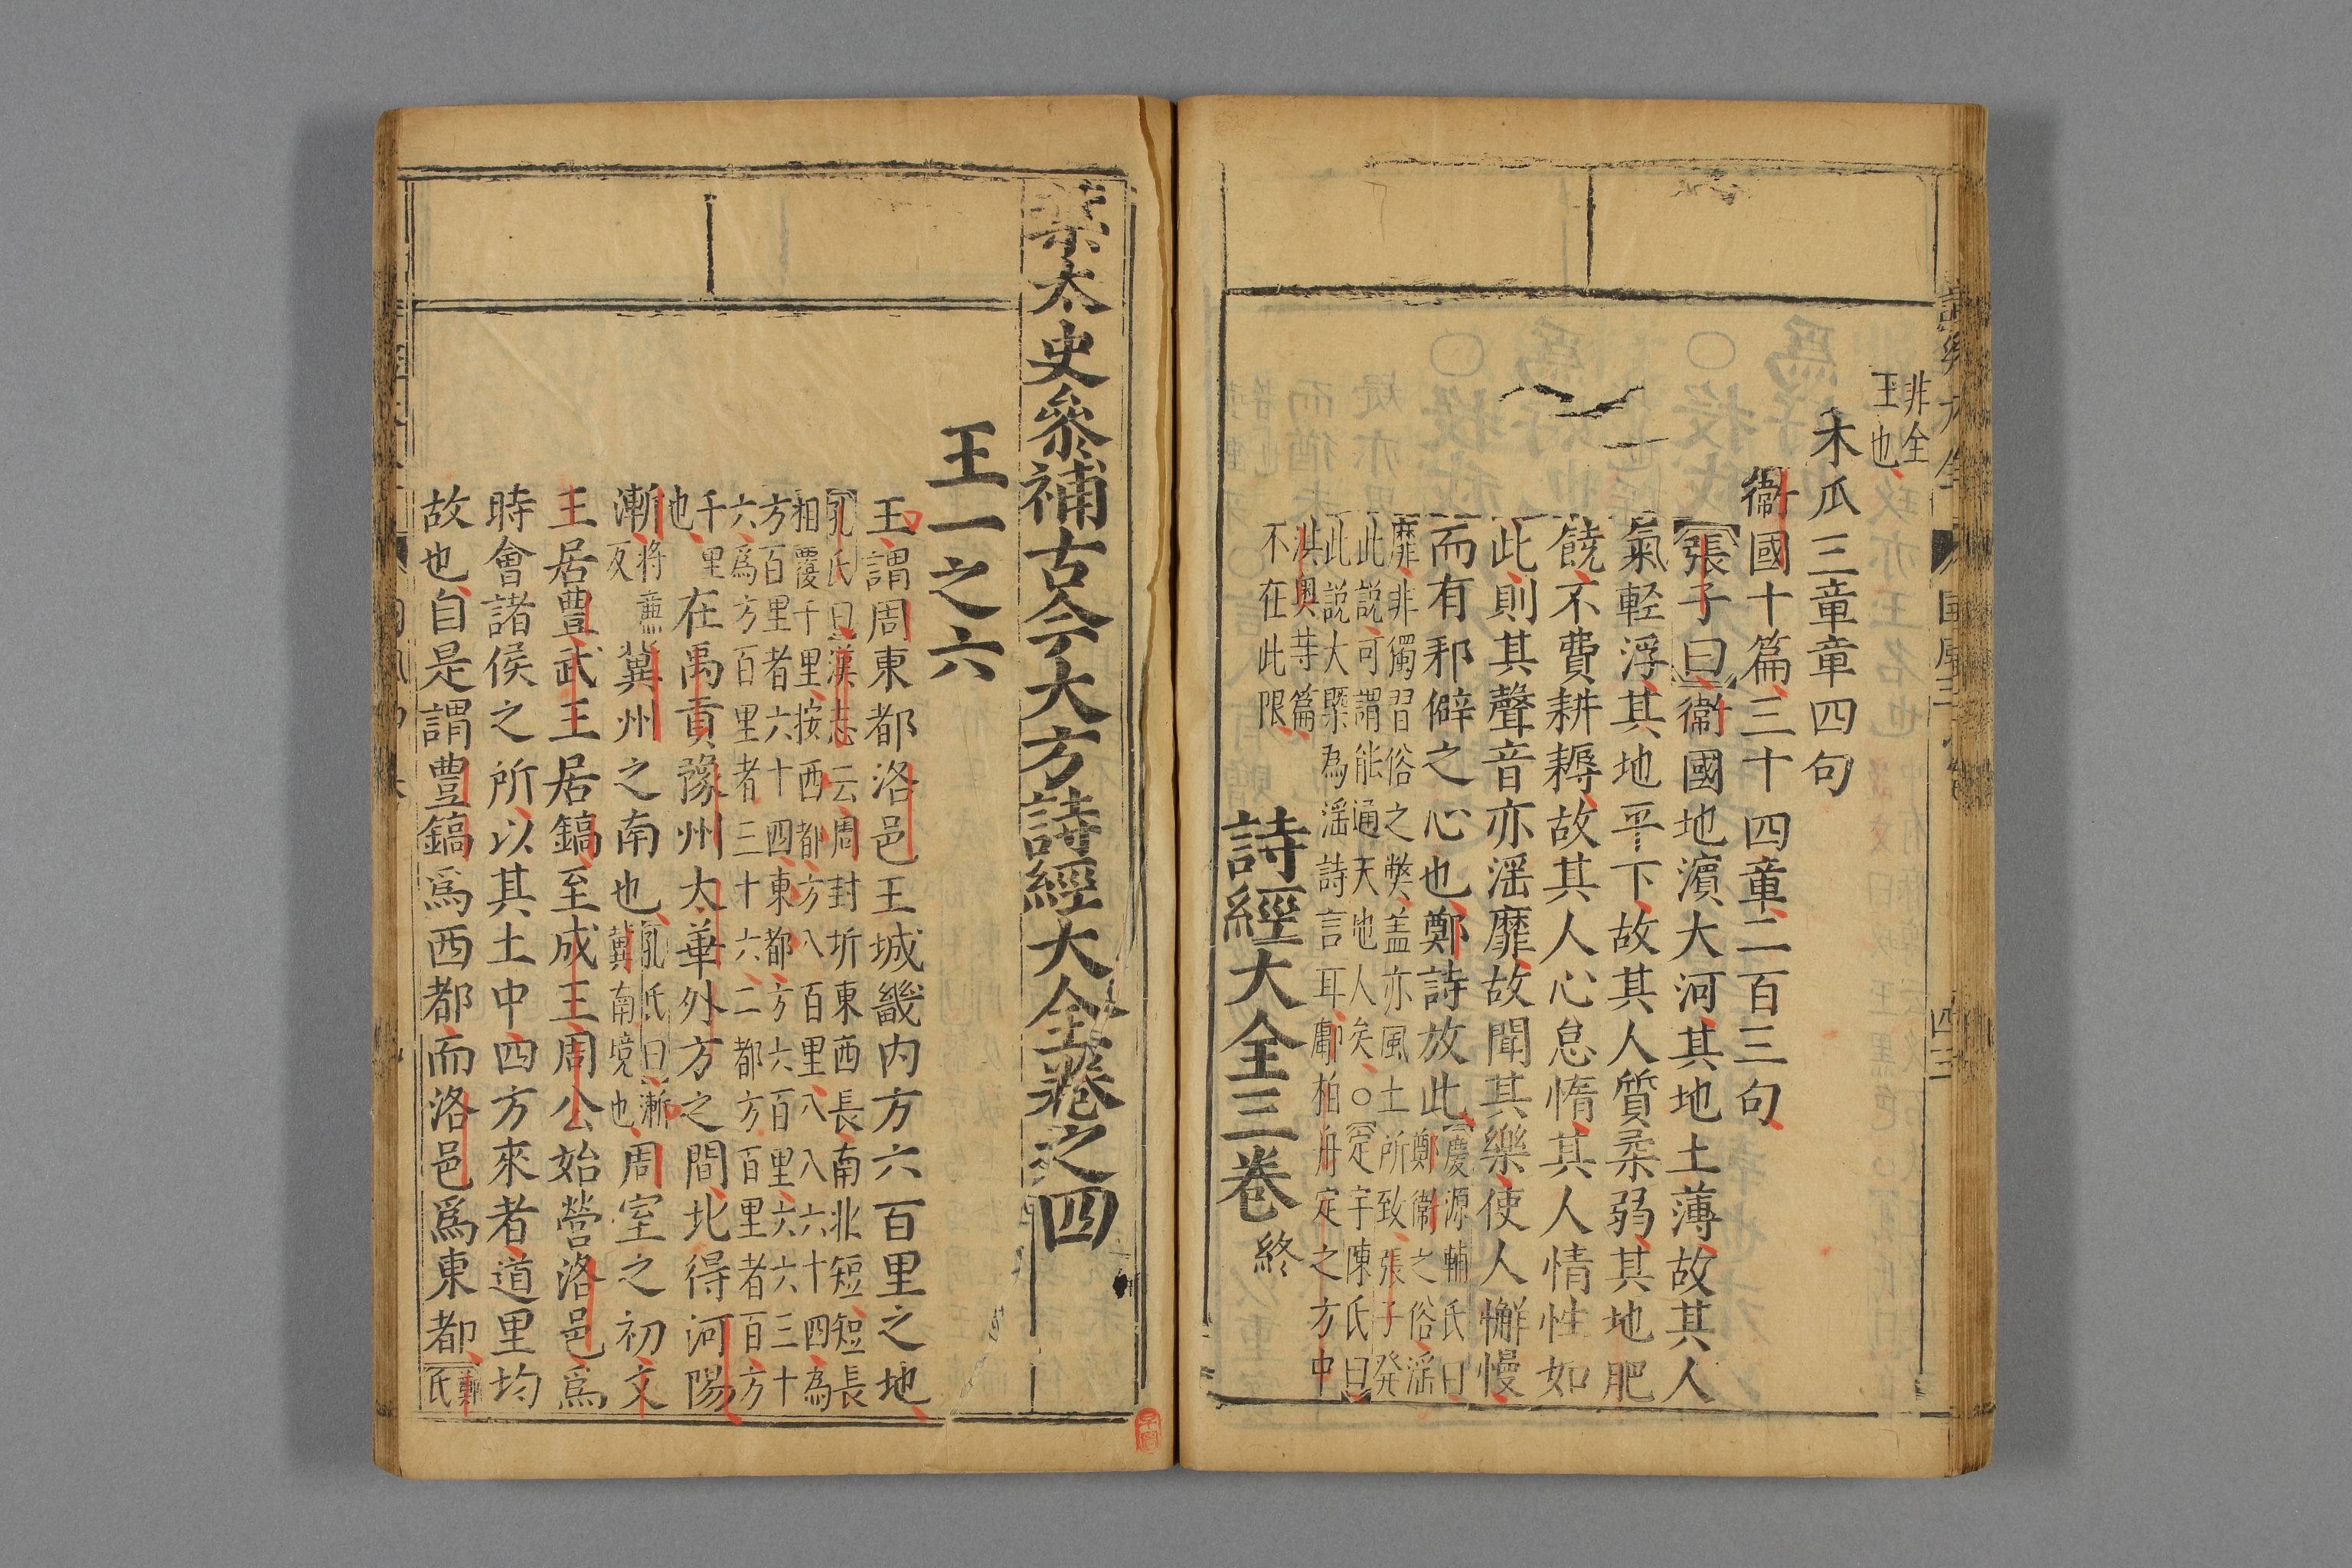 非全
王也
木瓜三章章四句
衞國十篇三十四章二百三句
張子曰衞國地濵大河其地土薄故其人
氣輕浮其地平下故其人質柔弱其地肥
饒不費耕耨故其人心怠惰其人情性如
此則其聲音亦滛靡故聞其樂使人懈慢
而有邪僻之心也鄭詩放此
慶源輔氏曰
鄭衞之俗滛
靡非獨習俗之弊盖亦風土所致張子発
此説可謂能通天地人矣○定宇陳氏曰
此説大槩為滛詩言耳鄘柏舟定之方中
淇奧等篇
不在此限
詩經大全三巻終
詩經大全
國風三
四三
葉太史叅補古今大方詩經大全巻之四
王一之六
王謂周東都洛邑王城畿内方六百里之地
孔氏曰漢志云周封圻東西長南北短短長
相覆千里按西都方八百里八八六十四為
方百里者六十四東都方六百里六六三十
六為方百里者三十六二都方百里者百方
千里
也
在禹貢豫州大華外方之間北得河陽
漸
將亷
反
冀州之南也
孔氏曰漸
冀南境也
周室之初文
王居豊武王居鎬至成王周公始營洛邑爲
時會諸侯之所以其土中四方來者道里均
故也自是謂豊鎬爲西都而洛邑爲東都
鄭
氏